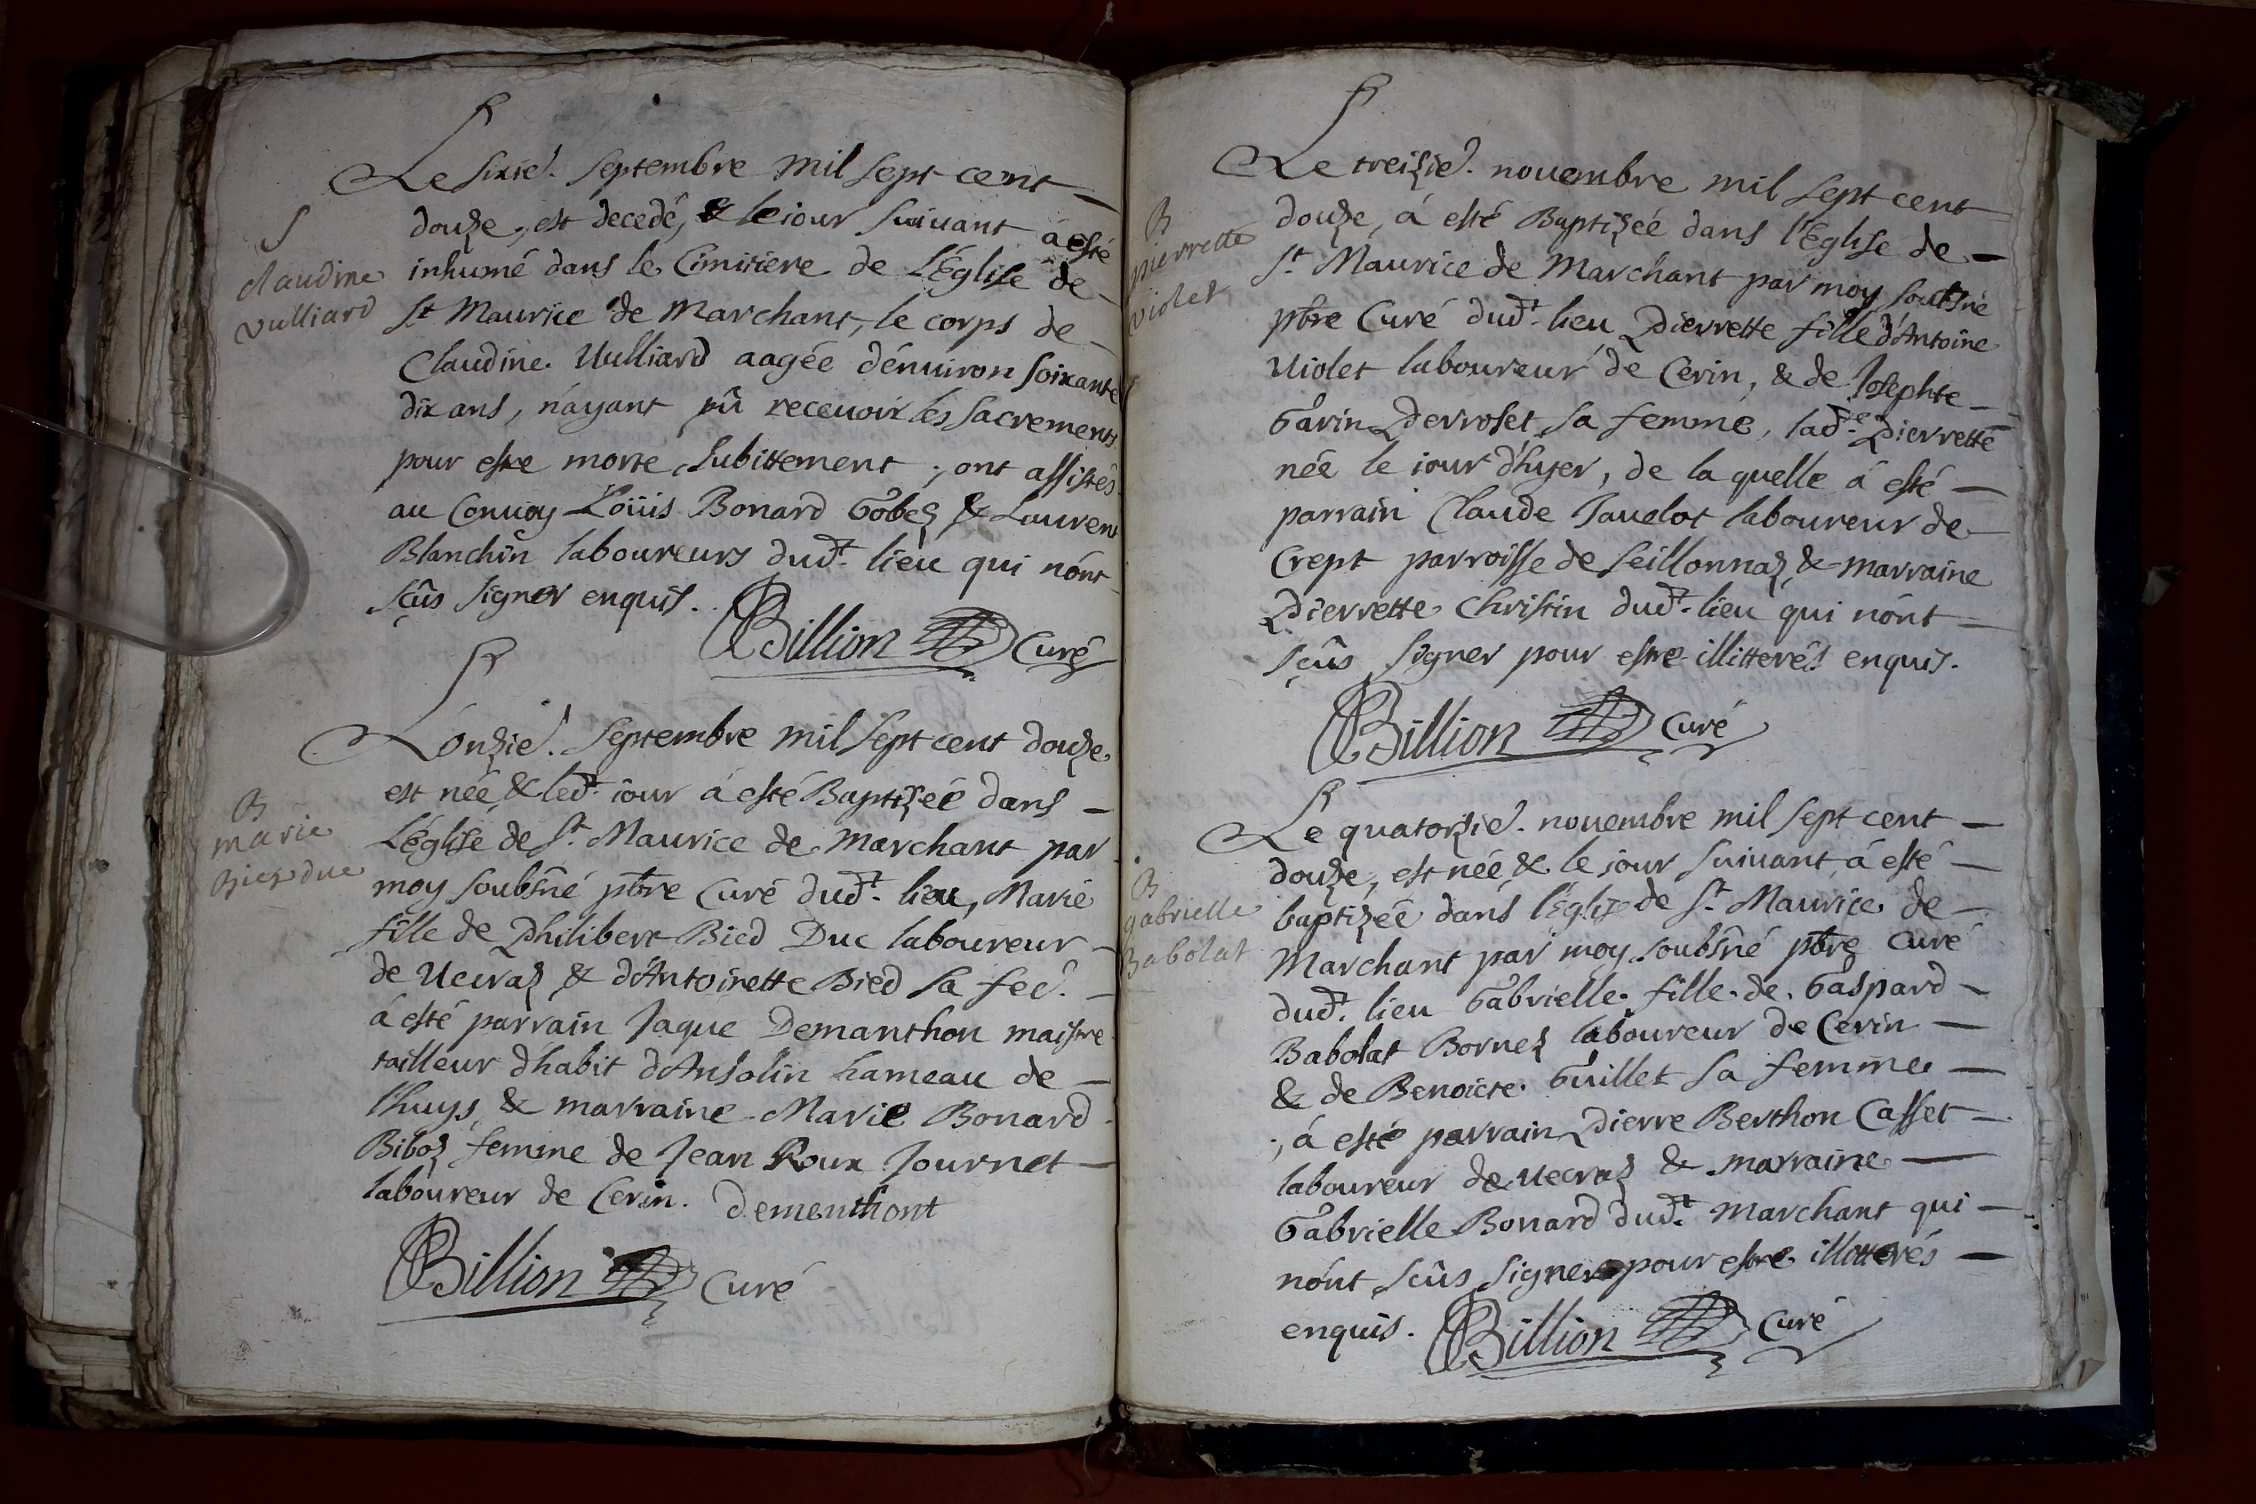 Le sixie. septembre mil sept cent
douze, est decedé, & le iour suiuant à esté
S
claudine
vulliard
inhumé dans le Cimitiere de L'Église de
St Maurice de Marchant, le corps de
Claudine Uulliard aagée d'énuiron soixante
dix ans, n'ayant pû receuoir les sacrements
pour estre morte subittement, ont assistés
au Conuoy Loüis Bonard Gobez & Lauren
Blanchin laboureurs dudt. lieu qui n'ont
sçûs signer enquis.
Billion Curé
L'onzie. septembre mil sept cent douze
est née & ledt. iour à esté Baptizée dans
B
marie
Bied duc
L'église de St. Maurice de Marchant par
moy soubsné pbre Curé dudt. lieu, Marie
fille de Philibert Bied Duc laboureur
de Uecraz & d'Antoinette Bied sa fee.
à esté parrain Jaque Demanthon maistre
tailleur d'habit d'Ansolin hameau de
l'huys, & marraine Marie Bonard
Biboz femme de Jean Roux Journet
laboureur de Cerin. Dementhont
Billion Curé
Le treizie. nouembre mil sept cent
douze, à esté Baptizée dans l'Église de
B
pierrette
violet
St. Maurice de Marchant par moy soubsné
pbre Curé dudt. lieu Pierrette fille d'Antoine
Uiolet laboureur de Cerin, & de Josephte
Garin Perroset sa femme, lade. Pierrette
née le iour d'hyer, de la quelle à esté
parrain Claude Jauelot laboureur de
Crept parroisse de Seillonnaz & marraine
Pierrette Christin dudt. lieu qui n'ont
sçûs signer pour estre illitterés enquis.
Billion Curé
Le quatorzie. nouembre mil sept cent
douze, est née & le iour suiuant à esté
B
gabrielle
Babolat
baptizée dans l'Église de St. Maurice de
Marchant par moy soubsné pbre Curé
dudt. lieu Gabrielle fille de Gaspard
Babolat Bornez laboureur de Cerin
& de Benoicte Guillet sa femme
, à esté parrain Pierre Berthon Casset
laboureur de uecraz & marraine
Gabrielle Bonard dudt. Marchant qui
n'ont sçûs signer pour estre illitterés
enquis. Billion Curé